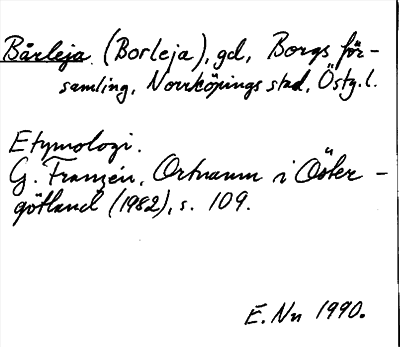 Bårleja (Borleja), gd, Borgs för-
samling, Norrköpings stad, Östg.l.
Etymologi.
G. Franzén, Ortnamn i Öster-
götland (1982), s. 109.
E. Nn 1990.